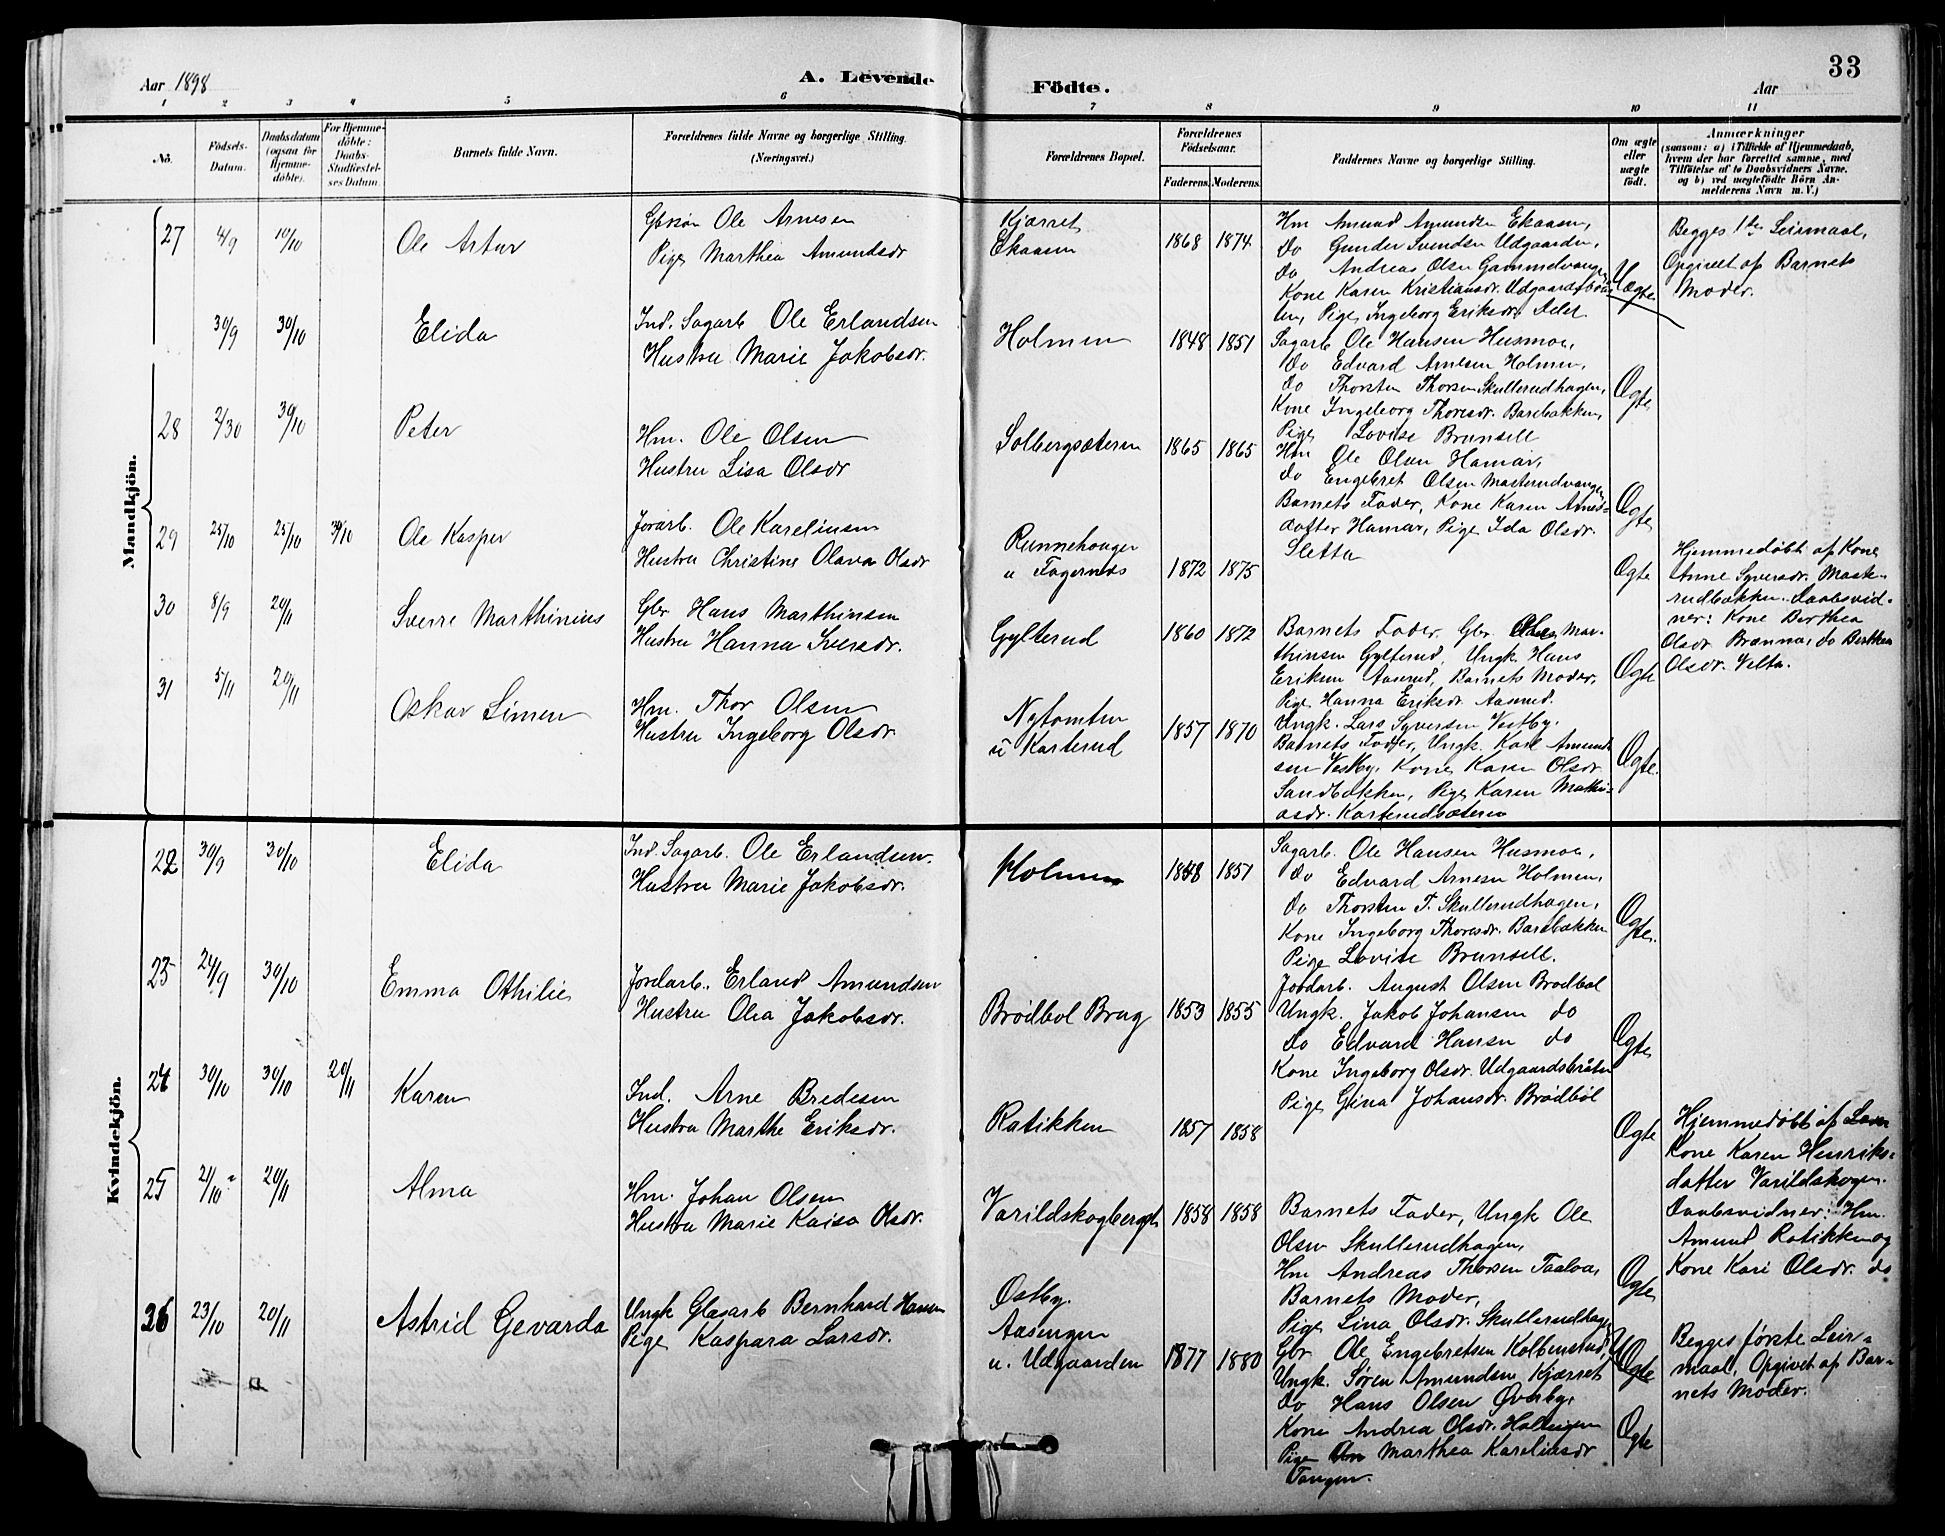 33
Aar 1898
A. Levende Födte.
Aar
1 2 3 4 5 6 7 8 9 10 11
No.
Födsels-
Datum.
Daabsdatum
(ogsaa for
Hjemme-
döbte).
For Hjemme-
döbte:
Daabs-
Stadfæstel-
ses Datum.
Barnets fulde Navn.
Forældrenes fulde Navne og borgerlige Stilling.
(Næringsvei.)
Forældrenes Bopæl.
Forældrenes
Födselsaar.
Faderens. Moderens.
Faddernes Navne og borgerlige Stilling.
Om ægte
eller
uægte
födt.
Anmærkninger
(saasom: a) i Tilfælde af Hjemmedaab,
hvem der har forrettet samme, med
Tilföielse af to Daabsvidners Navne,
og b) ved uægtefödte Börn An-
melderens Navn m. V.)
Mandkjön.
27 4/9 10/10
Ole Artur
Ole Arnesen
Pige Marthea Amundsdr
Kjærret
Ekaasen
1868 1874
Hm Amund Amundsen Ekaasen,
Do Gunder Svendsen Udgaarden,
Do Andreas Olsen Gammelvangen
Kone Karen Kristiansdr. Udgaardsbraa-
ten, Pige Ingeborg Eriksdr.
Uægte
Begges 1ste Leirmaal,
Opgivet af Barnets
Moder.
30/9 30/10
Elida
Ind. Sagarb. Ole Erlandsen
Hustru Marie Jakobsdr.
Holmen
1848 1851
Sagarb. Ole Hansen Husmoe,
Do Edvard Arnesen Holmen,
Do Thorsten Thorsen Skullerudhagen,
Kone Ingeborg Thoresdr. Barebakken,
Pige Lovise Brunsell
Ægte
28 2/30 30/10
Peter
Hm. Ole Olsen
Hustru Lisa Olsdr
Solbergsæteren
1865 1865
Hm Ole Olsen Hamar,
Do Engebret Olsen Masterudvangen
Barnets Fader, Kone Karen Arnes-
datter Hamar, Pige Ida Olsdr.
Sletta
Ægte
29 25/10 25/10 30/10
Ole Kasper
Jorarb. Ole Karelinsen
Hustru Christine Olava Olsdr
Runnehaugen
u Fagernes
1872 1875
Ægte
Hjemmedøbt af Kone
Anne Syversdr. Maste-
rudbækken. Daabsvid-
ner: Kone Berthea
Olsdr. Brænna, do Berthea
Olsdr. Velta.
30 8/9 20/11
Sverre Marthinius
Gbr Hans Marthinsen
Hustru Hanna Iversdr.
Gylterud
1860 1872
Barnets Fader, Gbr. Mar-
thinsen Gylterud, Ungk. Hans
Eriksen Aasrud, Barnets Moder,
Pige Hanna Eriksdr. Aasrud.
Ægte
31 5/11 20/11
Oskar Simen
Hm. Thor Olsen
Hustru Ingeborg Olsdr.
Nytomten
u Karterud
1857 1870
Ungk. Lars Syversen Vestby.
Barnets Fader, Ungk. Karl Amund
sen Vestby, Kone Karen Olsdr.
Sandbakken, Pige Karen Mathi-
asdr. Karterudsæteren
Ægte.
Kvindekjön.
22 30/9 30/10
Elida
Ind. Sagarb. Ole Erlandsen.
Hustru Marie Jakobsdr.
Holmen
1848 1851
Sagarb. Ole Hansen Husmoe,
Do Edvard Arnesen Holmen,
Do Thorsten T. Skullerudhagen,
Kone Ingeborg Thoresdr. Barebakken
Pige Lovise Brunsell.
Ægte.
23 24/9 30/10
Emma Othilie
Jordarb. Erland Amundsen
Hustru Olea Jakobsdr.
Brödbol Brug
1853 1855
Jordarb. August Olsen Brodbol
Ungk. Jakob Johansen do
Do Edvard Hansen do
Kone Ingeborg Olsdr. Udgaardsbråten
Pige Gina Johansdr. Brödböl
Ægte
24 30/10 30/10 20/11
Karen
Ind. Arne Bredesen
Hustru Marthe Eriksdr.
Ratikken
1857 1858
Ægte
Hjemmedøbt af
Kone Karen Henriks-
datter Varildskogen.
Daabsvidner: Hm.
Amund Ratikken og
Kone Kari Olsdr. do
25 21/10 20/11
Alma
Hm. Johan Olsen
Hustru Marie Kaisa Olsdr.
Varildskogberget
1858 1858
Barnets Fader, Ungk Ole
Olsen Skullerudhagen,
Hm Andreas Thorsen Taalva,
Barnets Moder,
Pige Lina Olsdr. Skullerudhagen
Ægte
26 23/10 20/11
Astrid Gevarda
Ungk Glasarb Bernhard Hansen
Pige Kaspara Larsdr.
Ostby.
Aasengen
u. Udgaarden
1877 1880
Gbr Ole Engebretsen Kolbenstud,
Ungk. Sören Amundsen Kjærret
Do Hans Olsen Øverby,
Kone Andrea Olsdr.
Pige Marthea Karelinsdr
Tangen.
Uægte
Ægte
Begges første Leir-
maal, Opgivet af Bar-
nets Moder.